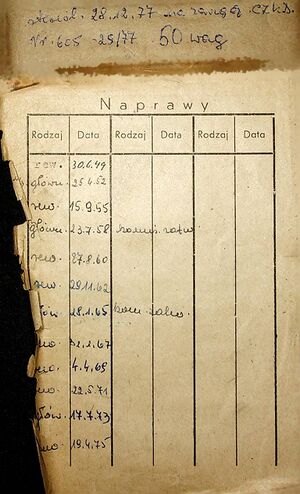 28.12.77 na
Nr. 605-25/77 50 wag
Naprawy
Rodzaj Data Rodzaj Data Rodzaj Data
rew. 30.6.49
główn. 25.4.52
rew. 15.9.55
główn. 23.7.58
rew. 27.8.60
rew. 29.11.62
łów. 28.1.65
67
4.4.69
22.5.71
łów. 17.7.73
19.4.75